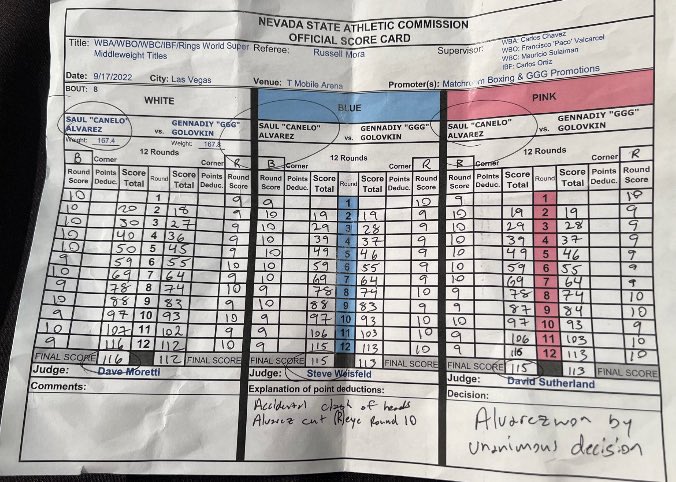 NEVADA STATE ATHLETIC COMMISSION
OFFICIAL SCORE CARD
Title: WBA/WBO/WBC/IBF/Rings World Super Middleweight Titles Referee: Russell Mora Supervisor: WBA: Carlos Chavez
WBO: Francisco "Paco" Valcarcel
WBC: Mauricio Sulaiman
IBF: Carlos Ortiz
Date: 9/17/2022 City: Las Vegas Venue: T Mobile Arena Promoter(s): Matchroom Boxing & GGG Promotions
BOUT: 8
WHITE BLUE PINK
SAUL "CANELO" ALVAREZ vs. GENNADIY "GGG" GOLOVKIN SAUL "CANELO" ALVAREZ vs. GENNADIY "GGG" GOLOVKIN SAUL "CANELO" ALVAREZ vs. GENNADIY "GGG" GOLOVKIN
Weight: 167.4 Weight: 167.8
12 Rounds 12 Rounds 12 Rounds
B Corner Corner R B Corner Corner R B Corner Corner R
Round Score Points Deduc. Score Total Round Score Total Points Deduc. Round Score Round Score Points Deduc. Score Total Round Score Total Points Deduc. Round Score Round Score Points Deduc. Score Total Round Score Total Points Deduc. Round Score
10 1 9 9 1 10 9 1 10
10 20 2 18 9 10 19 2 19 9 10 19 2 19 9
10 30 3 27 9 10 29 3 28 9 10 29 3 28 9
10 40 4 36 9 10 39 4 37 9 10 39 4 37 9
10 50 5 45 9 10 49 5 46 9 10 49 5 46 9
9 59 6 55 10 10 59 6 55 9 10 59 6 55 9
10 69 7 64 9 10 69 7 64 9 10 69 7 64 9
9 78 8 74 10 9 78 8 74 10 9 78 8 74 10
10 88 9 83 9 10 88 9 83 9 9 87 9 84 10
9 97 10 93 10 9 97 10 93 10 10 97 10 93 9
10 107 11 102 9 9 106 11 103 10 9 106 11 103 10
9 116 12 112 10 9 115 12 113 10 9 115 12 113 10
FINAL SCORE 116 112 FINAL SCORE FINAL SCORE 115 113 FINAL SCORE FINAL SCORE 115 113 FINAL SCORE
Judge: Dave Moretti Judge: Steve Weisfeld Judge: David Sutherland
Comments: Explanation of point deductions: Decision:
Accidental clash of heads
Alvarez cut (R) eye Round 10
Alvarez won by
unanimous decision